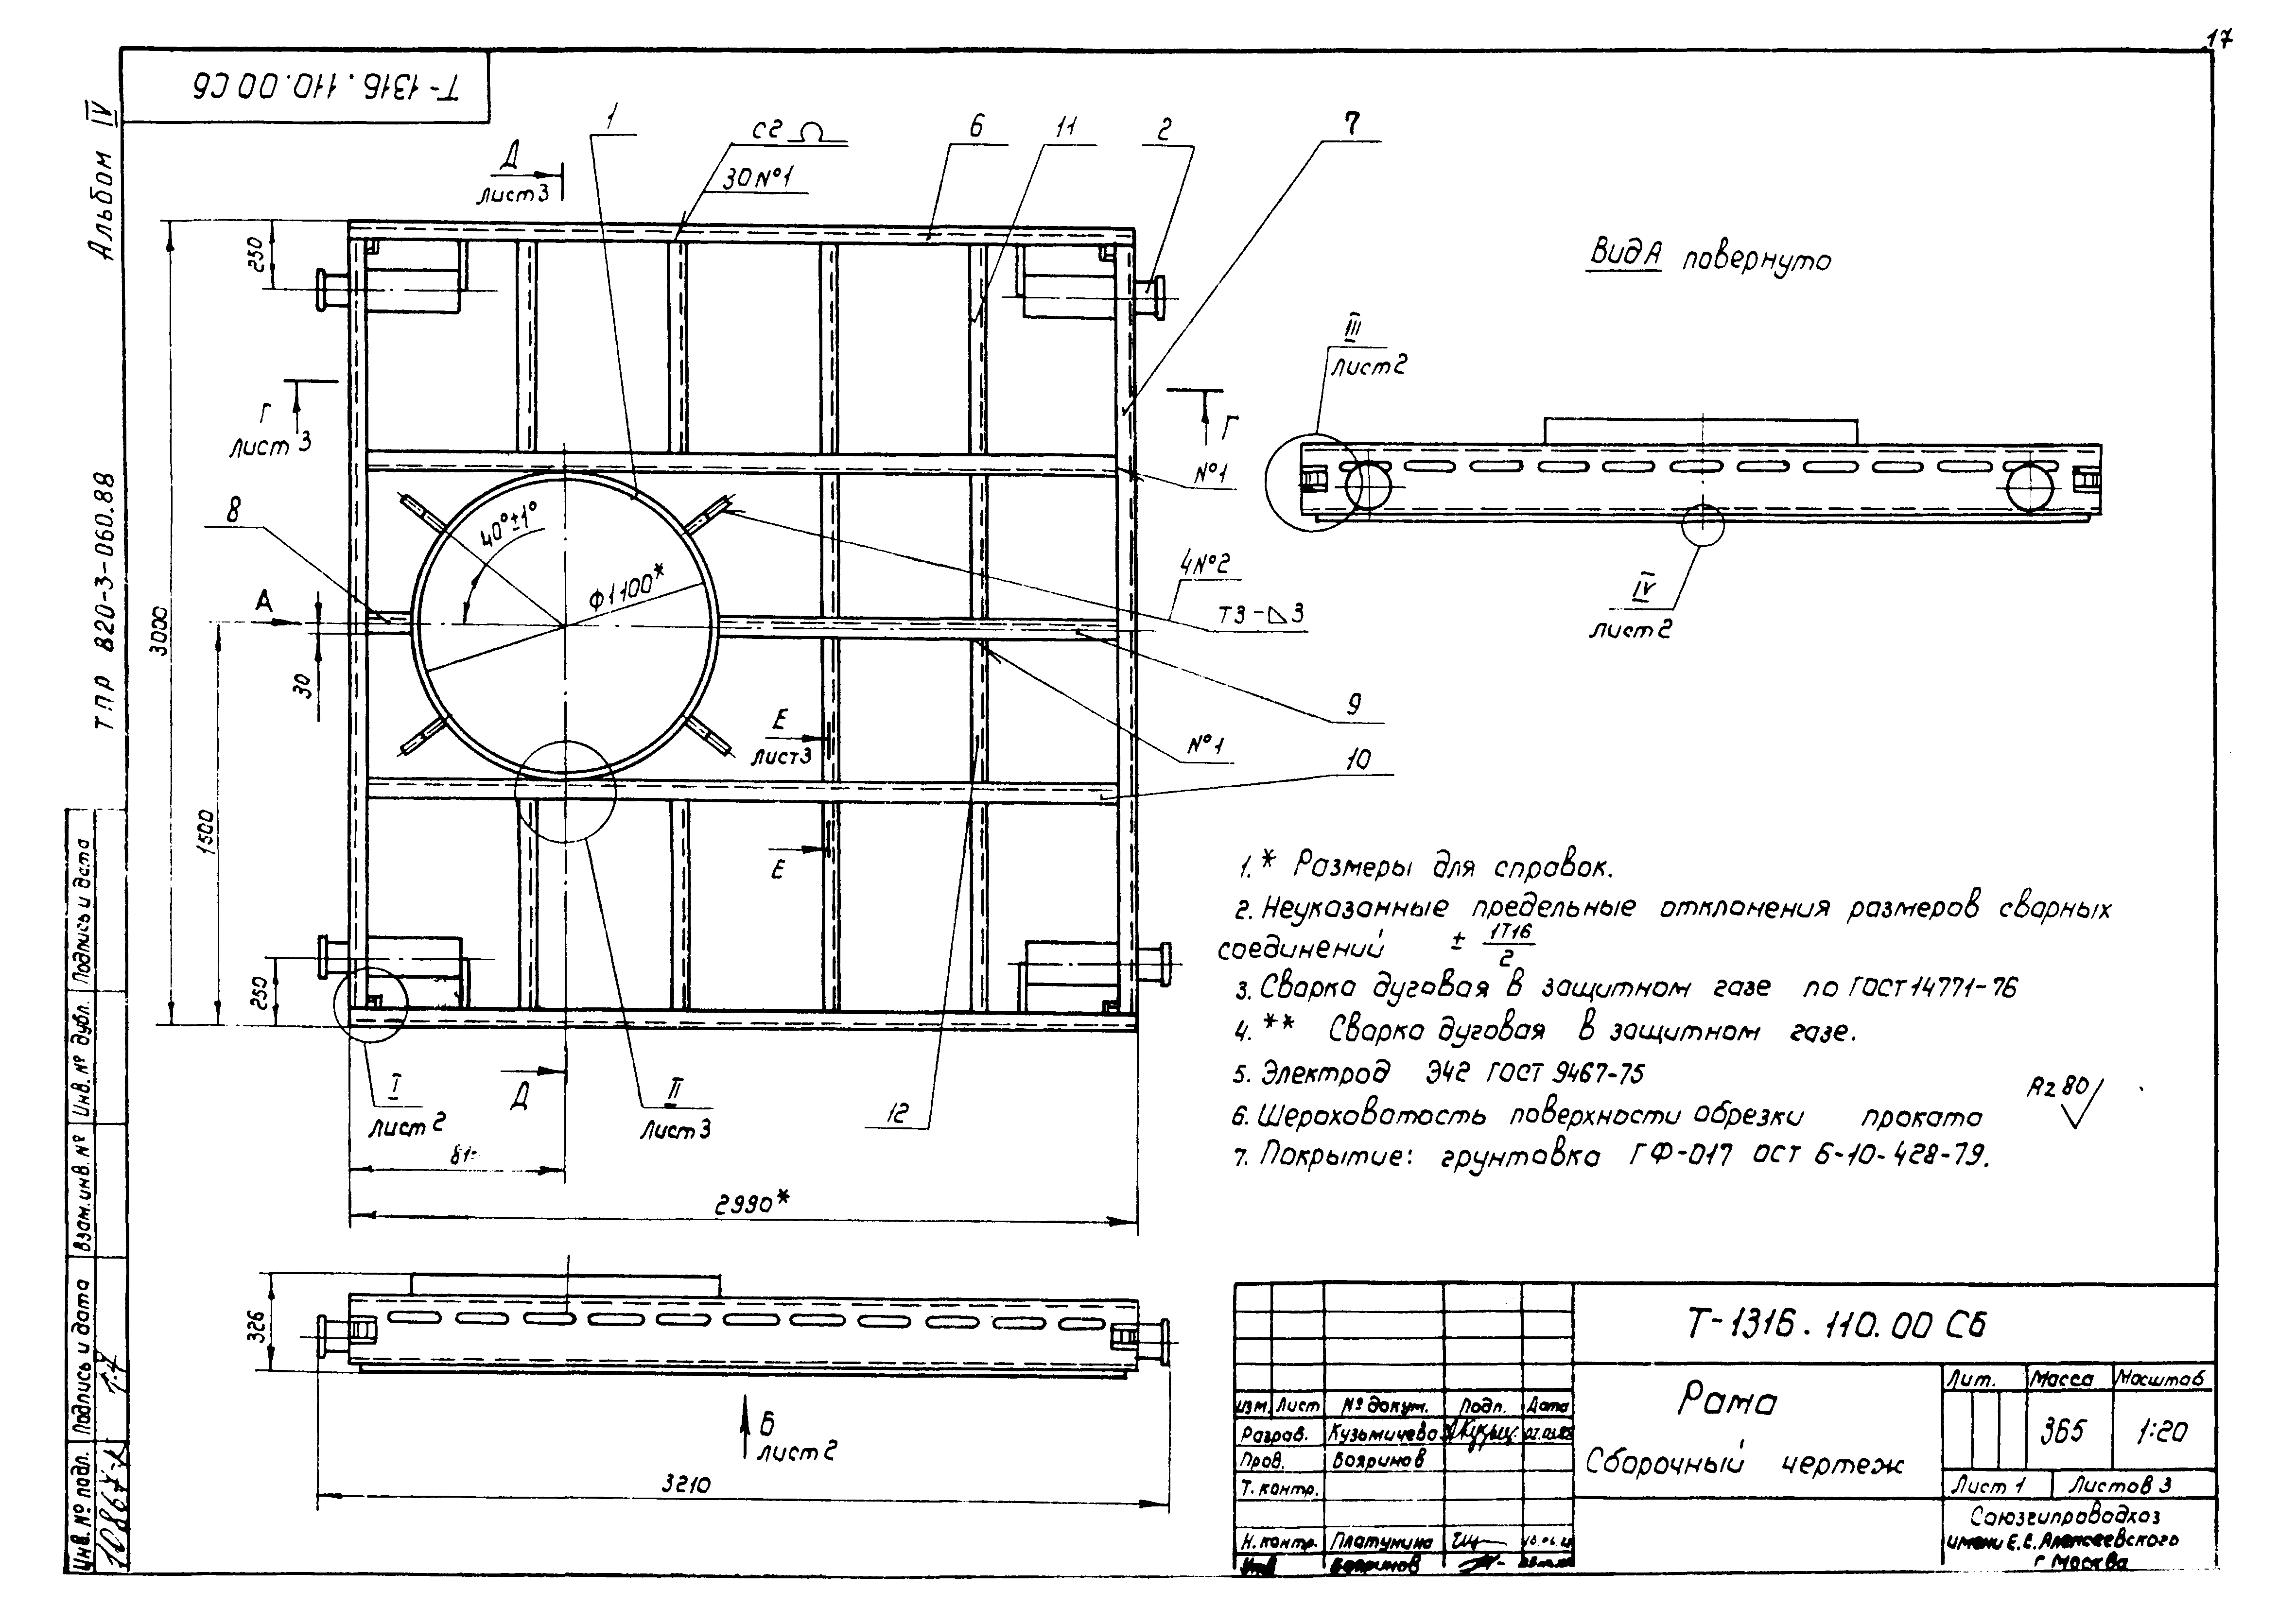 17
Т-1316.110.00 СБ
Альбом IV
ТПР 820-3-060.88
1
С2
30 №1
6
11
2
7
Д
лист 3
250
Г
лист 3
Г
№1
8
40°±1°
Ф1100*
А
30
3000
1500
4 №2
Т3-◺3
9
Е
лист 3
№1
10
Е
250
I
лист 2
Д
II
лист 3
12
2990*
326
Б
лист 2
3210
Вид А повернуто
III
лист 2
IV
лист 2
1.* Размеры для справок.
2. Неуказанные предельные отклонения размеров сварных
соединений ± IT16/2
3. Сварка дуговая в защитном газе по ГОСТ 14771-76
4. ** Сварка дуговая в защитном газе.
5. Электрод Э42 ГОСТ 9467-75
6. Шероховатость поверхности обрезки проката Rz 80
7. Покрытие: грунтовка ГФ-017 ОСТ 6-10-428-79.
Т-1316.110.00 СБ
Рама
Сборочный чертеж
Лит. Масса Масштаб
365 1:20
Лист 1 Листов 3
Союзгипроводхоз
имени Е.Е. Алексеевского
г Москва
Изм. Лист № докум. Подп. Дата
Разраб. Кузьмичева
Пров. Бояринов
Т. контр.
Н. контр. Платунина
Утв Бояринов
Подпись и дата
Инв. № дубл.
Взам. инв. №
Подпись и дата
Инв. № подл.
10867-